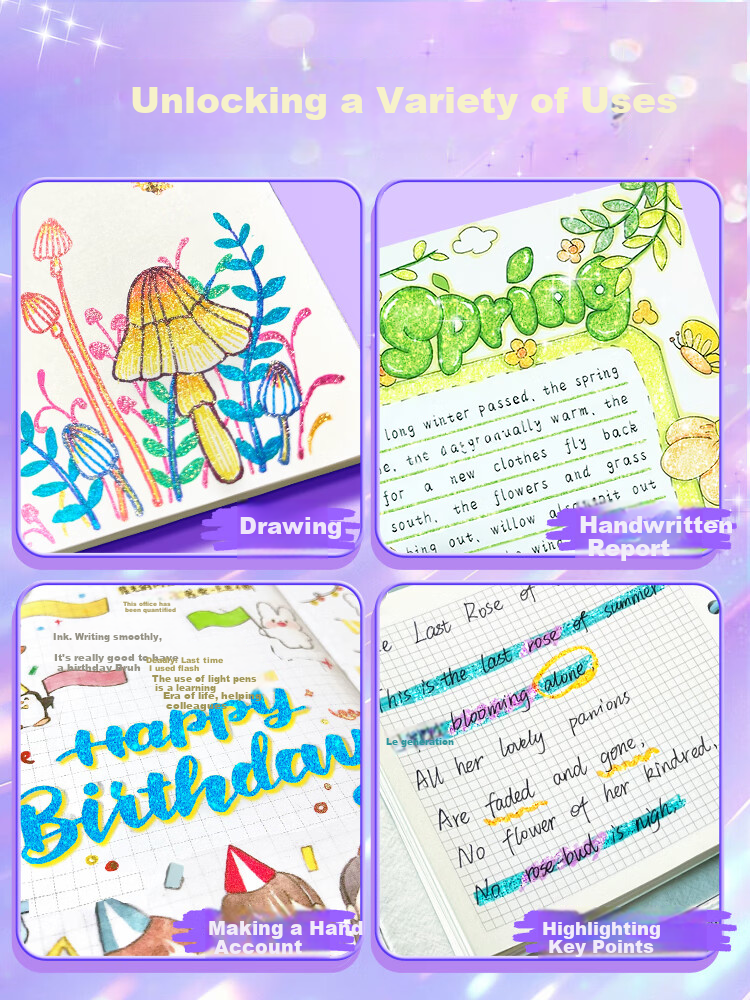 Unlocking a Variety of Uses
Drawing
Spring
long winter passed, the spring
the
warm, the
for a new clothes fly back
south, the flowers and grass
out, willow
out
Handwritten
Report
This office has
been quantified
Ink. Writing smoothly,
It's really good to have
a birthday Bruh
Last time
I used flash
The use of light pens
is a learning
Era of life, helping
colleagues
Happy
Birthday
Making a Hand
Account
Last Rose of
his is the last rose of summer
blooming alone,
Le generation
All her lovely
Are faded and gone,
No flower of her kindred,
No rose-bud is nigh,
Highlighting
Key Points